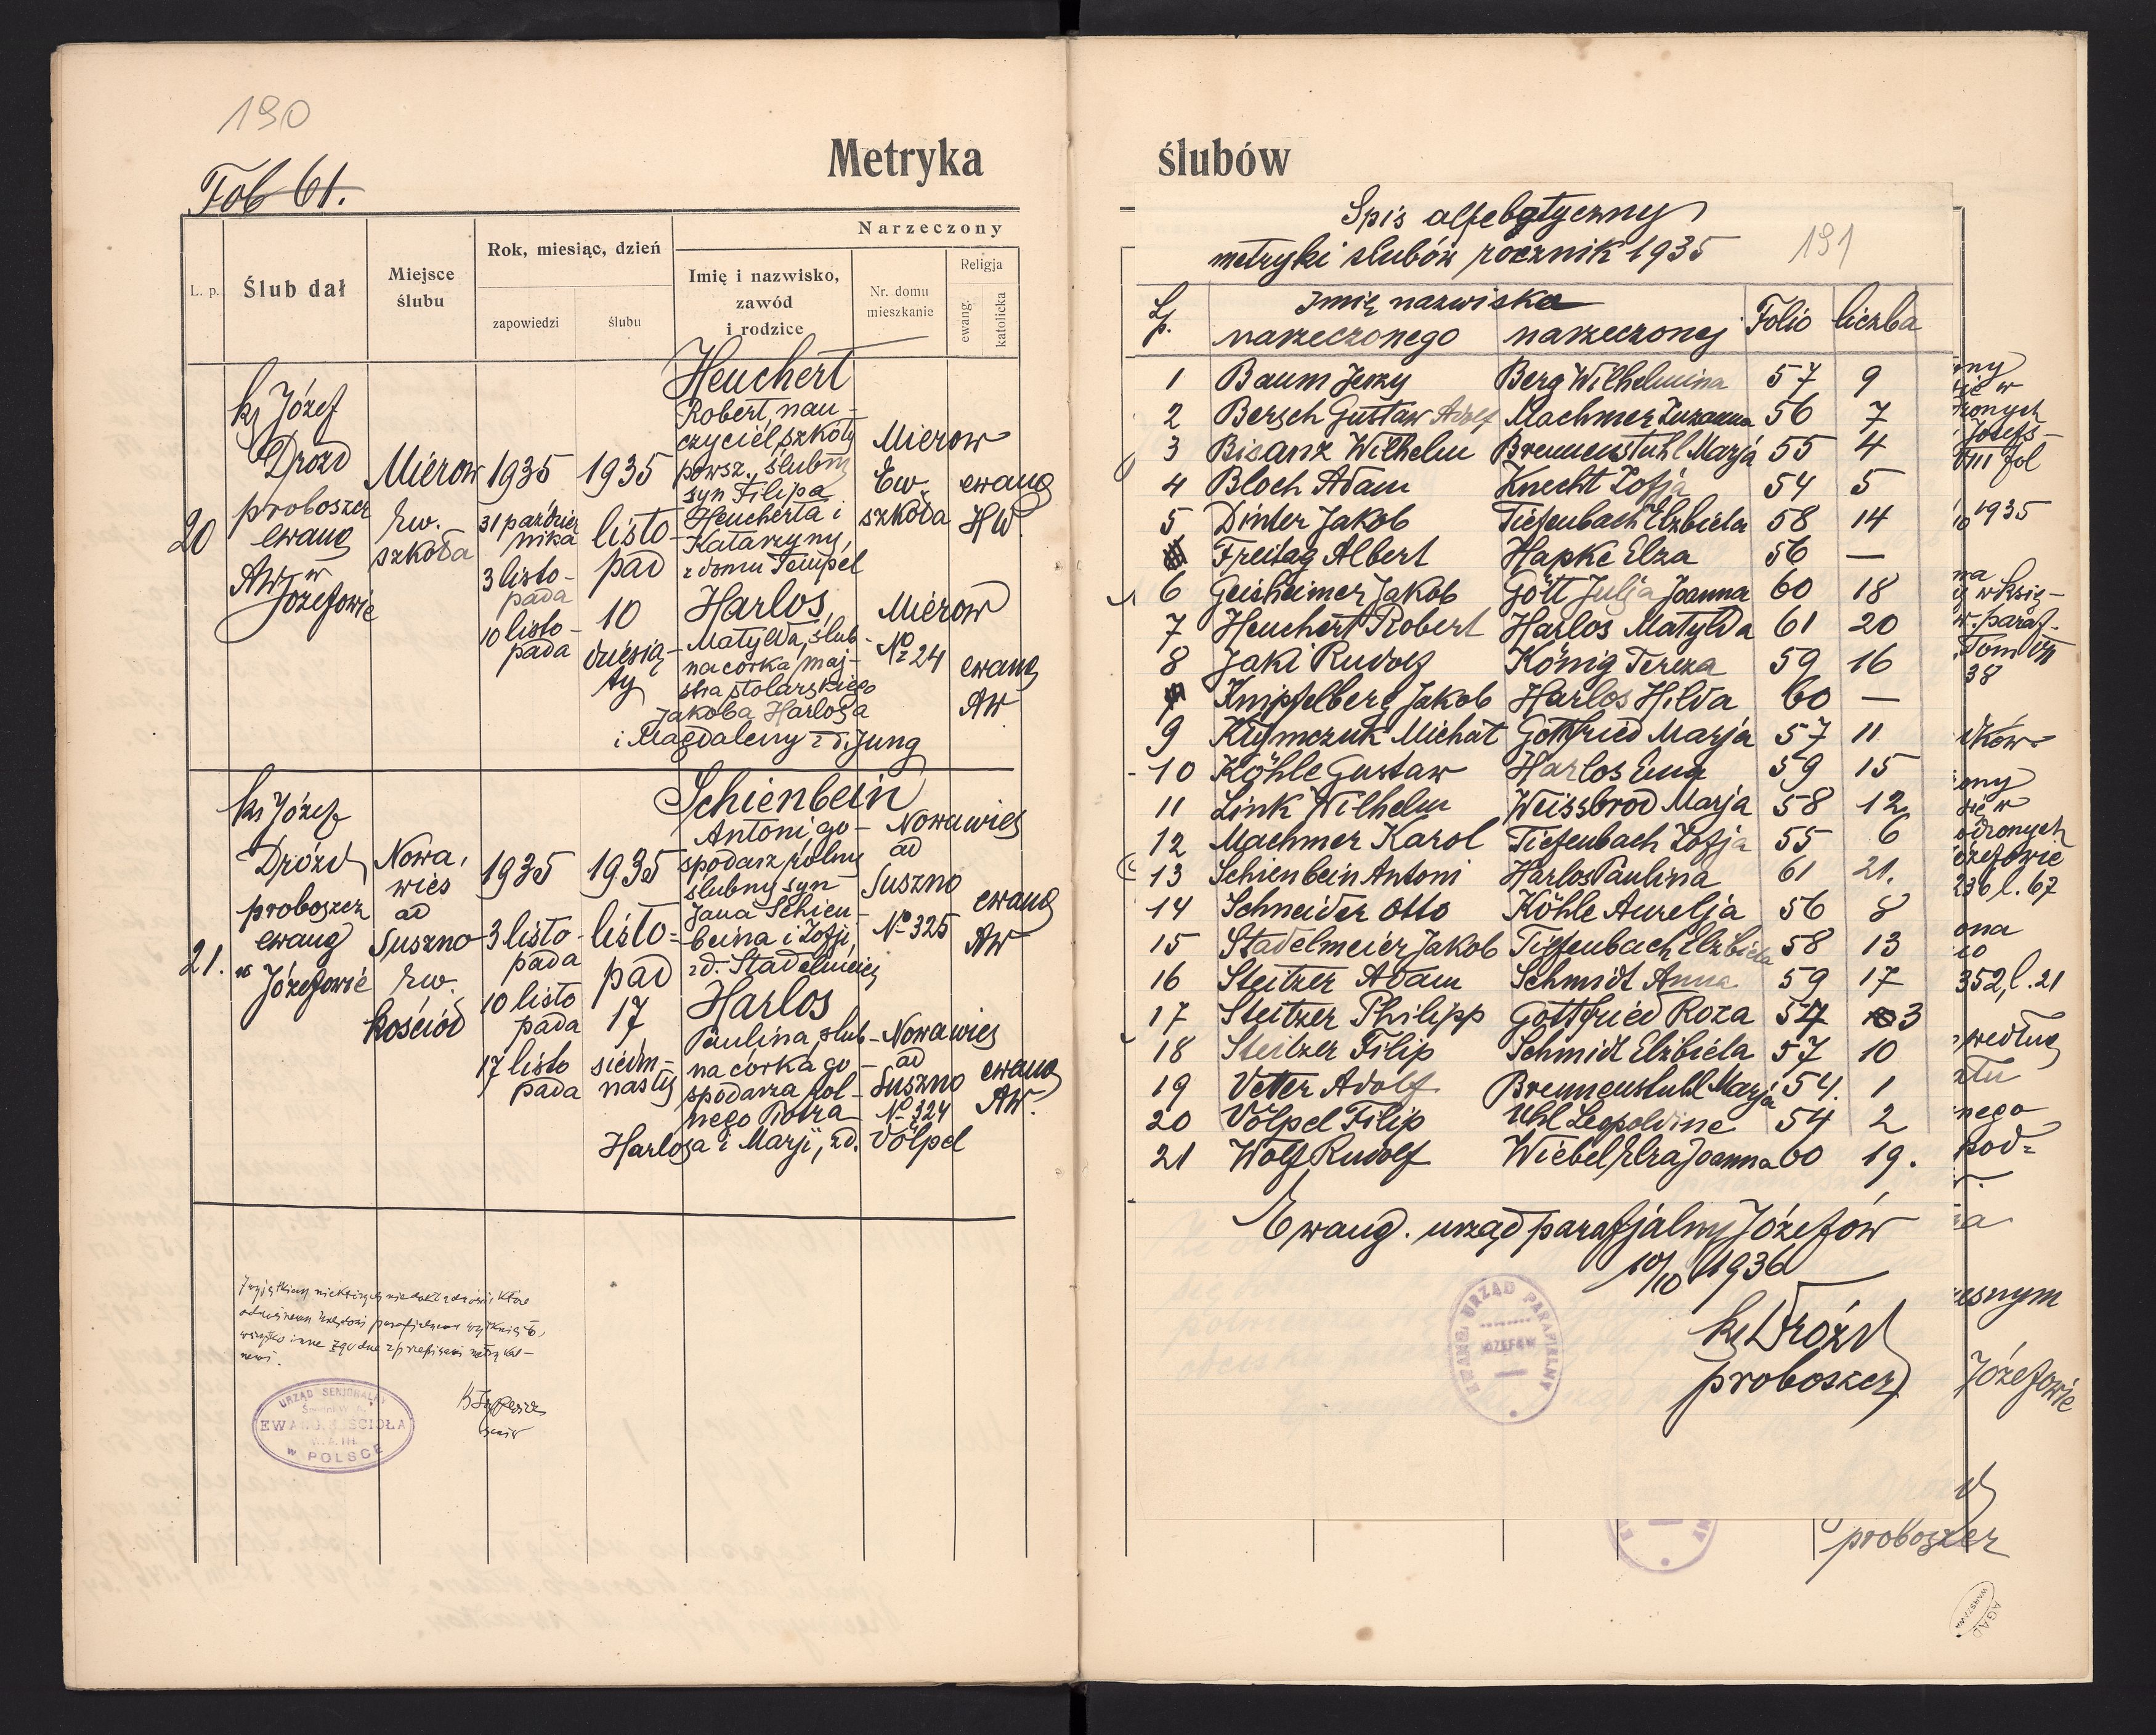 190
Metryka
Fol 61.
L. p.
Ślub dał
Miejsce
ślubu
Rok, miesiąc, dzień
zapowiedzi
ślubu
Narzeczony
Imię i nazwisko,
zawód
i rodzice
Nr. domu
mieszkanie
Religja
ewang.
katolicka
20
ks Józef
Drozd
proboszcz
ewang
AW w
Józefowie
Mierow
Ew.
szkoła
1935
31 paździer
nika
3 listo-
pada
10 listo-
pada
1935
listo-
pad
10
dziesią-
ty
Heuchert
Robert, nau-
czyciel szkoły
powsz., ślubny
syn Filipa
Heucherta i
Katarzyny,
z domu Tempel
Mierow
Ew.
szkoła
ewang
HW
Harlos,
Matylda, ślub-
na córka maj-
stra stolarskiego
Jakoba Harlosa
i Magdaleny z d. Jung
Mierow
No 24
ewang
AW
21.
ks Józef
Drózd
proboszcz
ewang
w Józefowie
Nowa,
wies
ad
Suszno
Ew.
kościół
1935
3 listo-
pada
10 listo
pada
17 listo
pada
1935
listo=
pad
17
siedm-
nasty
Schienbein
Antoni go-
spodarz rolny
ślubny syn
Jana Schien-
beina i Zofji,
z d. Stadelmeier
Nowawies
ad
Suszno
No 325
ewang
AW
Harlos
Paulina, ślub-
na córka go-
spodarza rol-
nego Piotra
Harlosa i Marji, zd. Völpel
Nowawies
ad
Suszno
No 324
ewang
AW.
URZĄD SENJORALNY
EWANG. KOŚCIOŁA
w POLSCE
ślubów
Spis alfebatyczny
metryki ślubów rocznik 1935
191
Lp.
Imię nazwiska
narzeczonego narzeczonej Folio liczba
1 Baum Jerzy Berg Wilhelmina 57 9
2 Bersch Gustaw Adolf Machmer Zuzanna 56 7
3 Bisanz Wilhelm Brennenstuhl Marja 55 4
4 Bloch Adam Knecht Zofja 54 5
5 Dinter Jakob Tiefenbach Elżbieta 58 14
Freitag Albert Hapke Elza 56 —
6 Geisheimer Jakob Gött Julja Joanna 60 18
7 Heuchert Robert Harlos Matylda 61 20
8 Jaki Rudolf König Tereza 59 16
Knipfelberg Jakob Harlos Hilda 60 —
9 Klymczuk Michał Gottfried Marja 57 11
10 Köhle Gustaw Harlos Ema 59 15
11 Link Wilhelm Weissbrod Marja 58 12
12 Machmer Karol Tiefenbach Zofja 55 6
13 Schienbein Antoni Harlos Paulina 61 21.
14 Schneider Otto Köhle Aurelja 56 8
15 Stadelmeier Jakob Tiefenbach Elżbieta 58 13
16 Steitzer Adam Schmidt Anna 59 17
17 Steitzer Philipp Gottfried Roza 54 3
18 Steitzer Filip Schmidt Elżbieta 57 10
19 Vetter Adolf Brennenstuhl Marja 54. 1
20 Völpel Filip Uhl Leopoldine 54 2
21 Wolf Rudolf Wiebel Elza Joanna 60 19.
Ewang. urząd parafjalny Józefów
10/10 1936
ks Drózd
proboszcz
EWANG. URZĄD PARAFIALNY
JÓZEFÓW
1935
38
236 l. 67
352, l. 21
według
Józefowie
proboszcz
AGAD
WARSZAWA